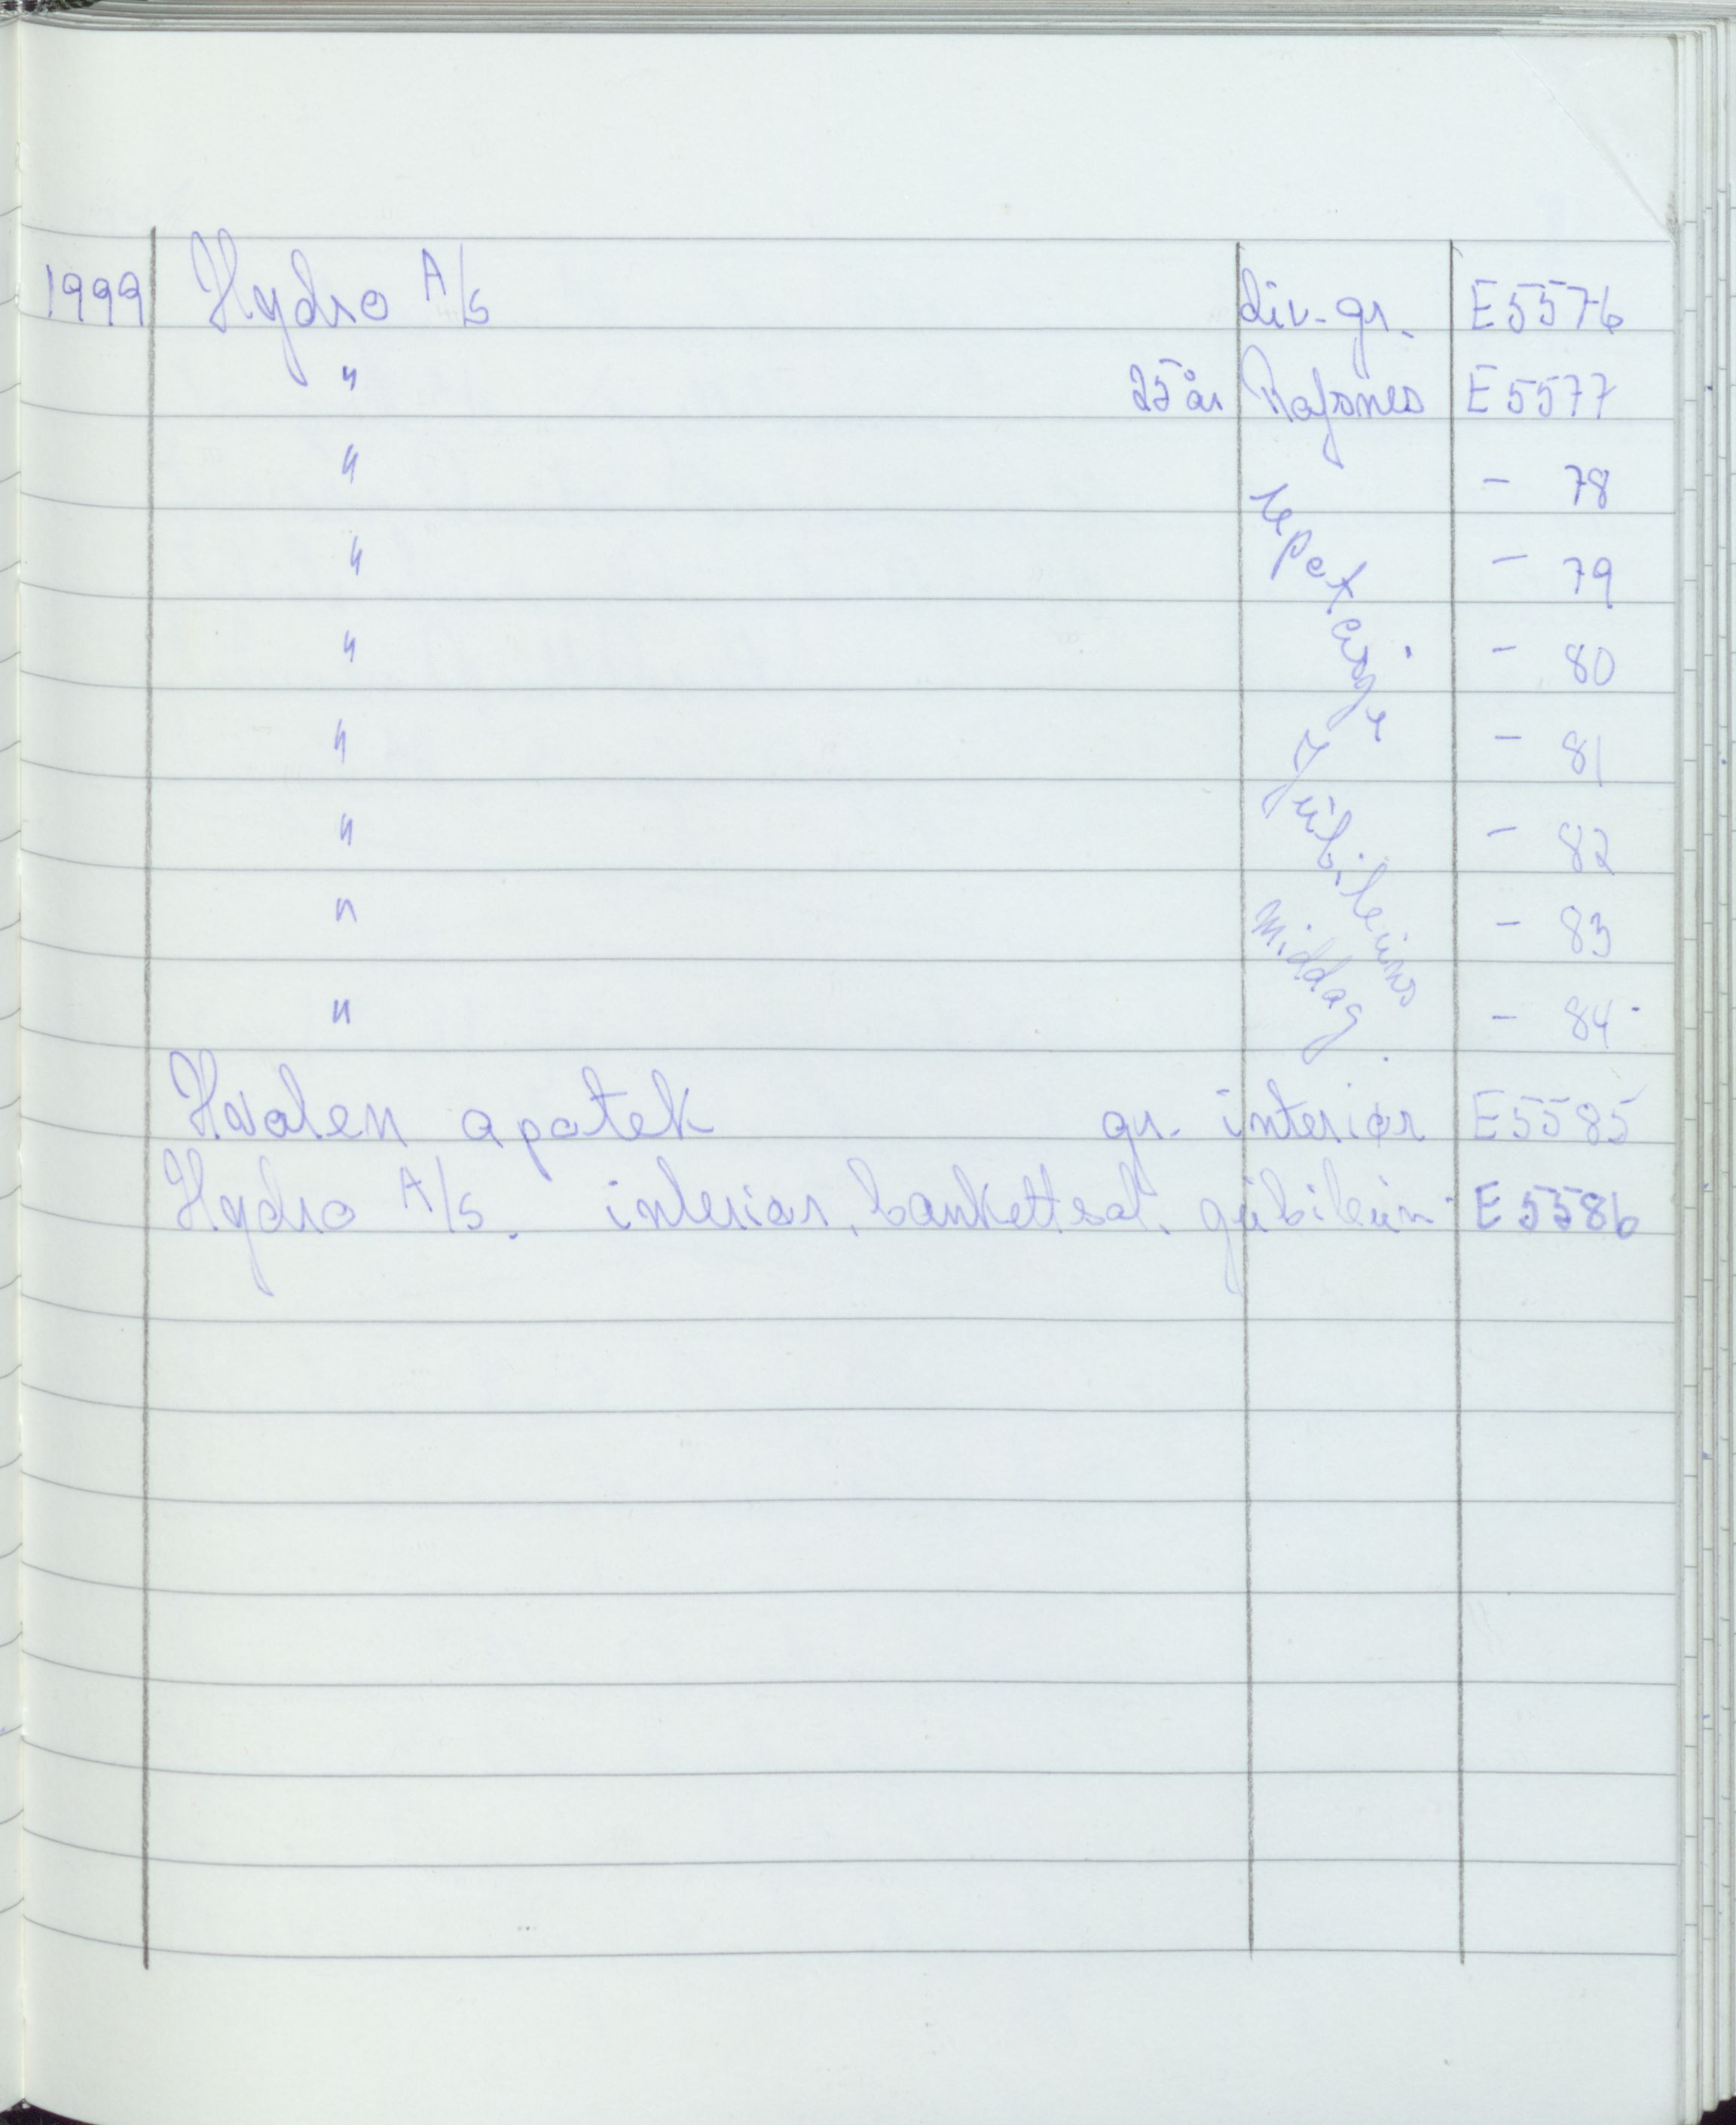 1999 Hydro A/s div. gr. E5576
" 25 år Rafsnes E5577
" - 78
" - 79
" - 80
" - 81
" - 82
" - 83
" - 84
repotasje
Jubileums
middag.
Hvalen apotek gr. interiør E5585
Hydro A/s. interiør, bankettsal. jubileum E5586